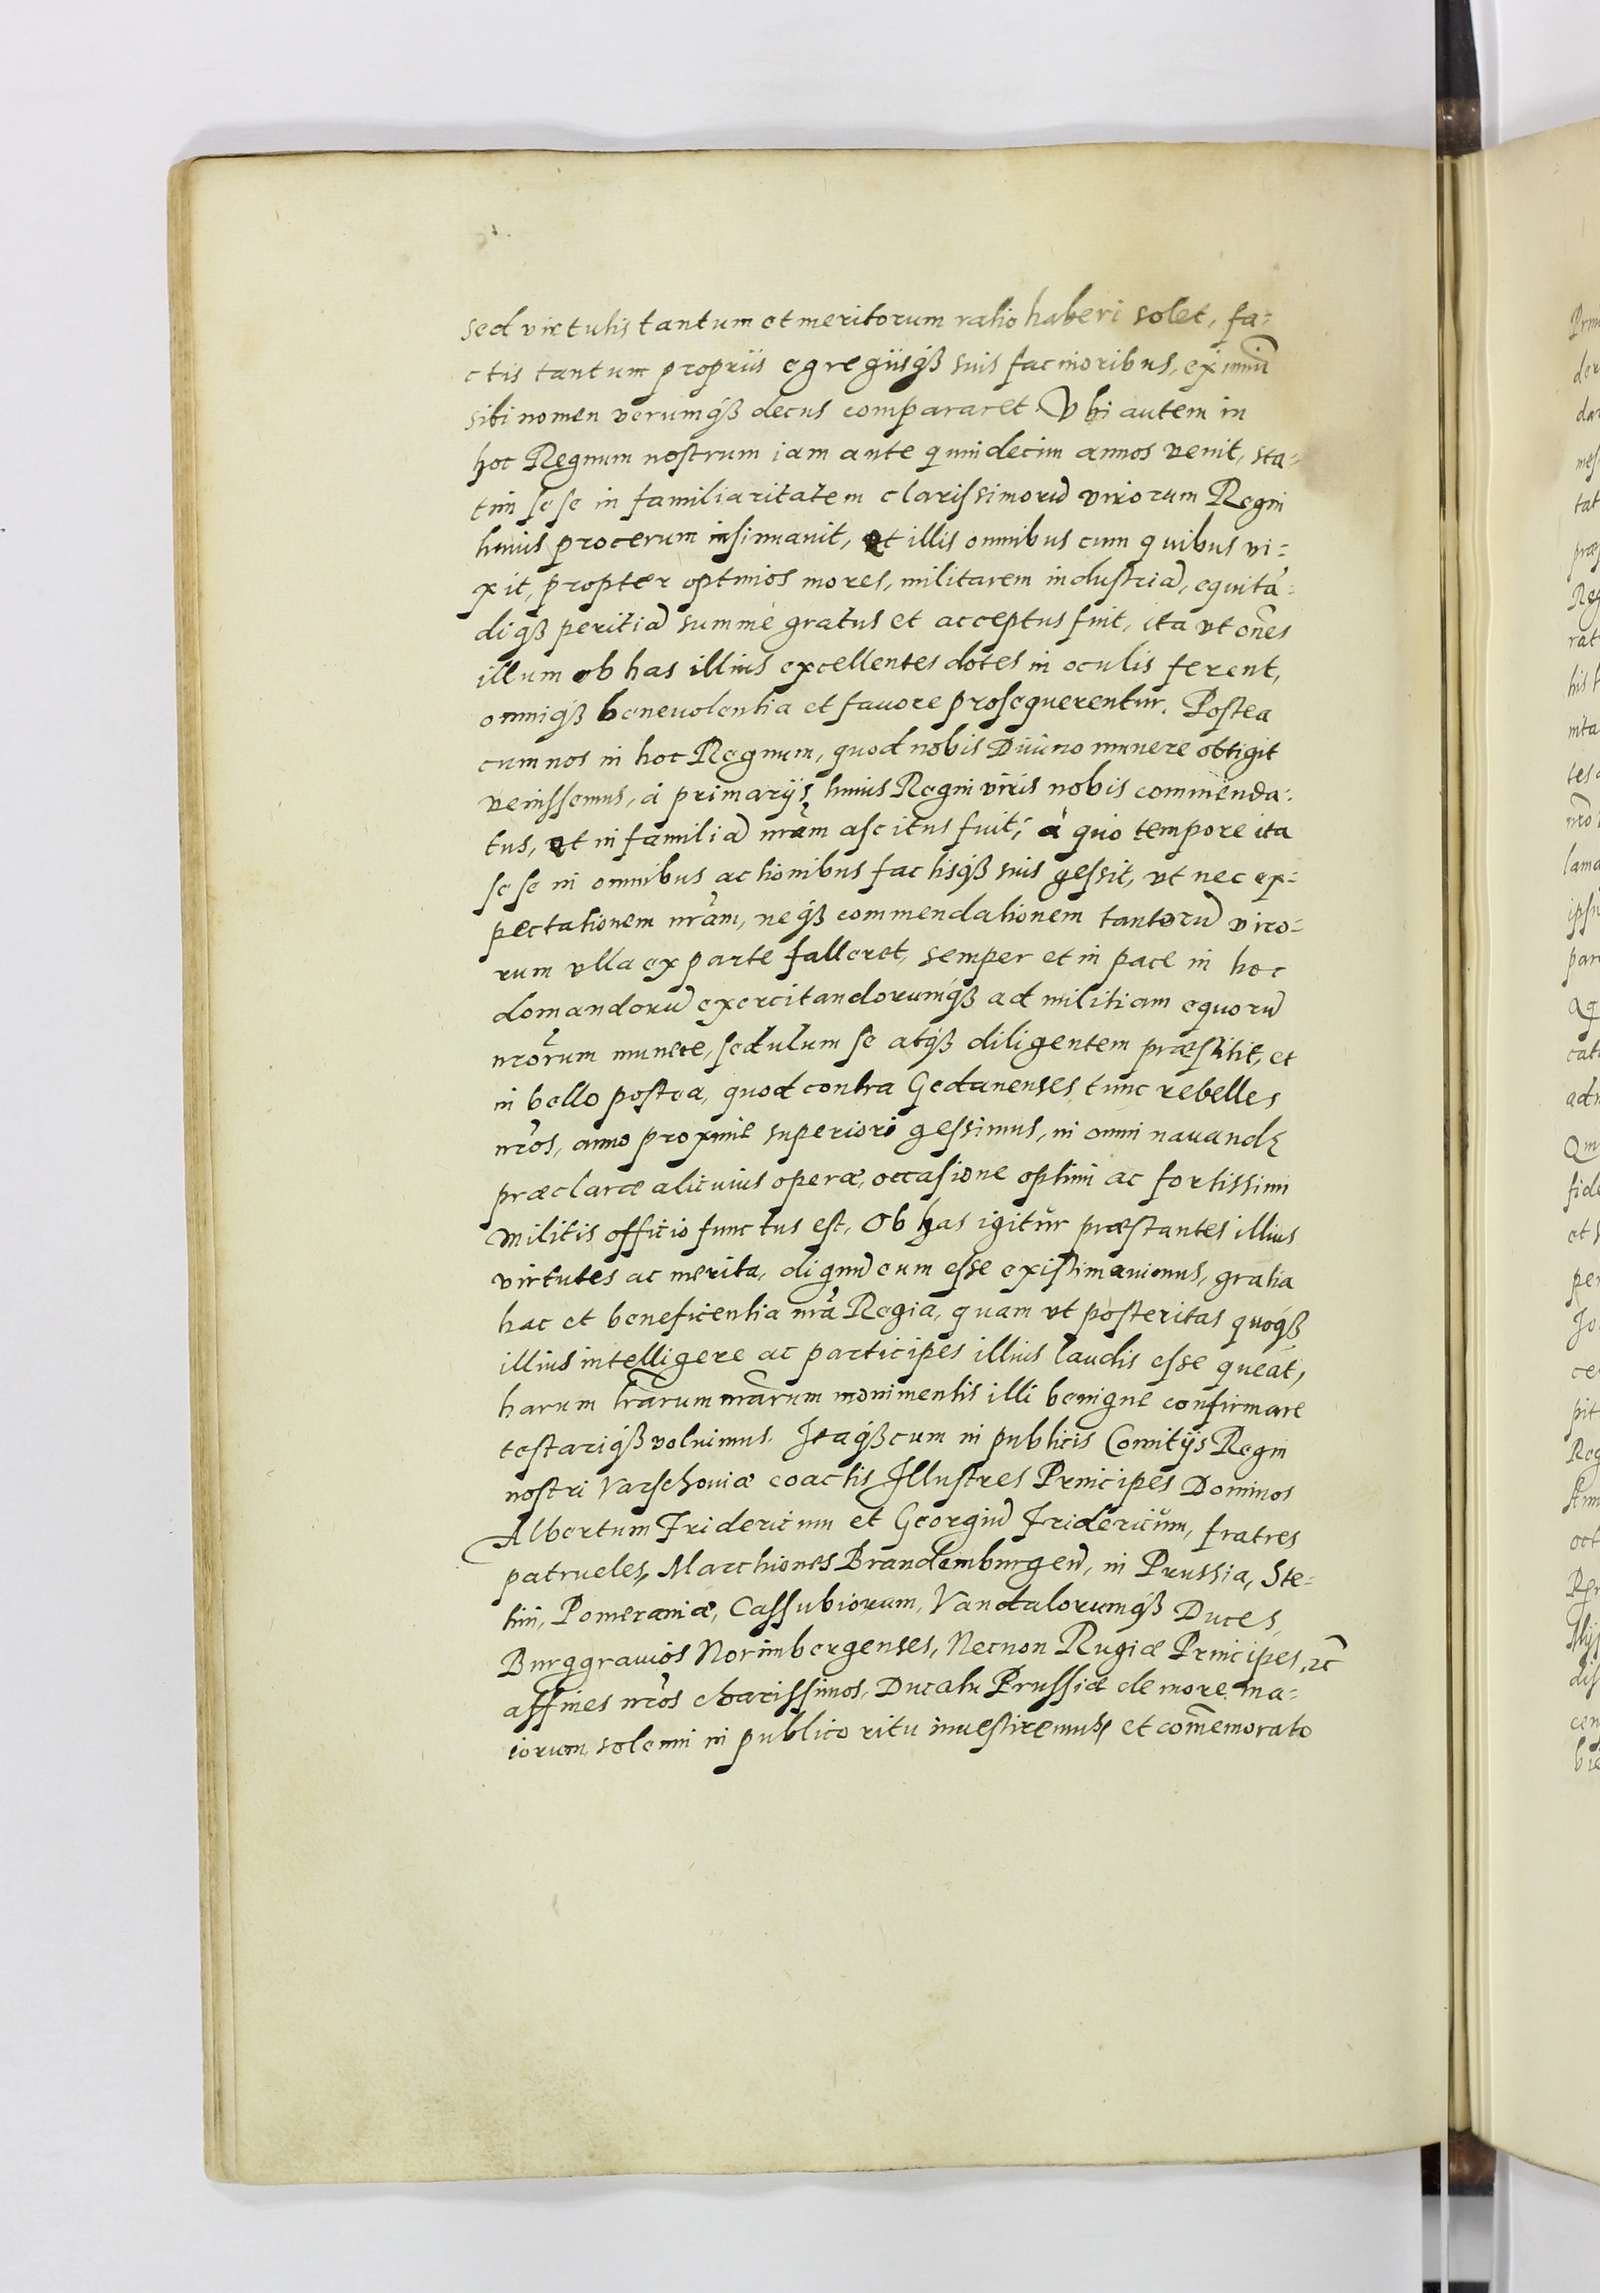 sed virtutis tantum et meritorum ratio haberi solet, fa-
ctis tantum propriis egregiisqß suis facinoribus, eximiũ
sibi nomen verumqß decus compararet Vbi autem in
hoc Regnum nostrum iam ante quindecim annos venit, sta-
tim sese in familiaritatem clarissimorũ virorum Regni
huius procerum insinuauit, et illis omnibus cum quibus vi-
xit, propter optimos mores, militarem industriã, equitã-
diqß peritiã summè gratus et acceptus fuit, ita vt oēs
illum ob has illius excellentes dotes in oculis ferent,
omniqß beneuolentia et fauore prosequerentur. Postea
cum nos in hoc Regnum, quod nobis Diuino munere obtigit
venissemus, à primarijs huius Regni viris nobis commenda-
tus, et in familiã nrãm ascitus fuit, à quo tempore ita
sese in omnibus actionibus factisqß suis gessit, vt nec ex-
pectationem nrãm, neqß commendationem tantorũ viro-
rum vlla ex parte falleret, semper et in pace in hoc
domandorũ exercitandorumqß ad militiam equorũ
nrõrum munere, sedulum se atqß diligentem præstitit, et
in bello postea, quod contra Gedanenses tunc rebelles
nrõs, anno proximè superiori gessimus, in omni nauandę
præclaræ alicuius operæ, occasione optimi ac fortissimi
militis officio functus est. Ob has igitur præstantes illius
virtutes ac merita, dignũ eum esse existimauimus, gratia
hac et beneficentia nrã Regia, quam vt posteritas quoqß
illius intelligere ac participes illius laudis esse queãt,
harum lrãrum nrãrum monimentis illi benigne confirmare
testariqß voluimus. Itaqß cum in publicis Comitijs Regni
nostri Varschouiæ coactis Illustres Principes Dominos
Albertum Fridericum et Georgiũ Fridericum, fratres
patrueles, Marchiones Brandemburgeñ, in Prussia, Ste-
tin, Pomeraniæ, Cassubiorum, Vandalorumqß Duces,
Burggrauios Norimbergenses, Necnon Rugiæ Principes, ⁊c̃
affines nrõs charissimos, Ducatu Prussiæ de more ma-
iorum solemni in publico ritu inuestiremus, et com̃emorato